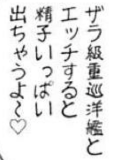 ザラ級重巡洋艦と
エッチすると
精子いっぱい
出ちゃうよ～♡